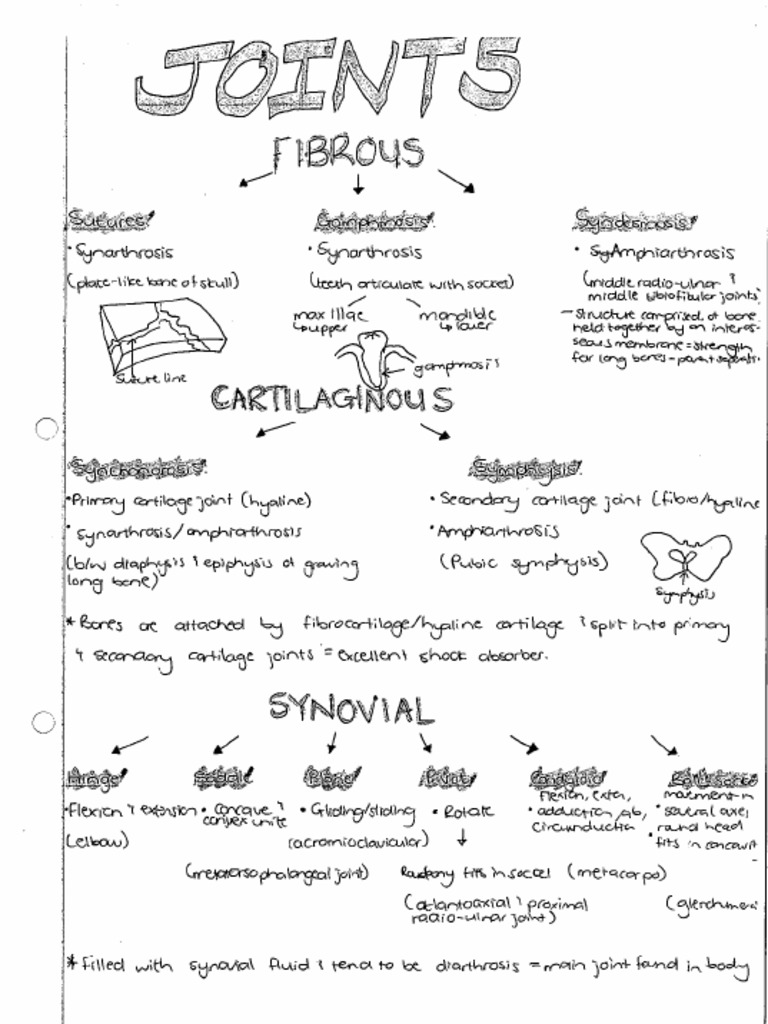 JOINTS
FIBROUS
Sutures
Gomphosis
Syndesmosis
• Synarthrosis
• Synarthrosis
• SyAmphiarthrosis
(plate-like bone of skull)
(teeth articulate with socket)
(middle radio-ulnar &
middle tibiofibular joints)
maxillae
↳upper
mandible
↳lower
- Structure comprised of bone
held together by an interos-
seous membrane = strength
for long bones -
gomphosis
Suture line
CARTILAGINOUS
Synchondrosis
Symphysis
• Primary cartilage joint (hyaline)
• Secondary cartilage joint (fibro/hyaline
• synarthrosis/amphiarthrosis
• Amphiarthrosis
(b/w diaphysis & epiphysis of growing
long bone)
(Pubic symphysis)
symphysis
* Bones are attached by fibrocartilage/hyaline cartilage & split into primary
& secondary cartilage joints = excellent shock absorber.
SYNOVIAL
Hinge
Saddle
Plane
Pivot
Condyloid
• Flexion & extension
(elbow)
• concave &
convex unite
(metatarsophalangeal joint)
• Gliding/sliding
(acromioclavicular)
• Rotate
fits in socket
(atlantoaxial & proximal
radio-ulnar joint)
flexion, exten,
• adduction, ab,
circumduction
(metacarpo)
movement in
• several axes
• round head
fits in
* filled with synovial fluid & tend to be diarthrosis = main joint found in body